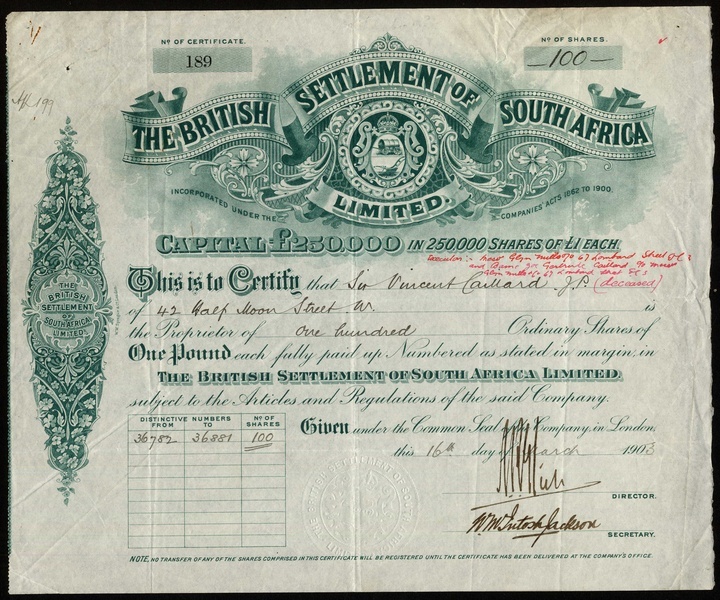 Nº OF CERTIFICATE.
189
Nº OF SHARES.
—100—
THE BRITISH SETTLEMENT OF SOUTH AFRICA
LIMITED.
INCORPORATED UNDER THE COMPANIES' ACTS 1862 TO 1900.
CAPITAL £250,000 IN 250,000 SHARES OF £1 EACH.
Glyn Mills 67 Lombard Street
and Gertrude Caillard
67 Lombard
This is to Certify that Sir Vincent Caillard J.P. (deceased)
of 42 Half Moon Street W. is
the Proprietor of One hundred Ordinary Shares of
One Pound each fully paid up Numbered as stated in margin, in
THE BRITISH SETTLEMENT OF SOUTH AFRICA LIMITED,
subject to the Articles and Regulations of the said Company.
THE BRITISH SETTLEMENT OF SOUTH AFRICA LIMITED.
DISTINCTIVE NUMBERS FROM TO Nº OF SHARES
36782 36881 100
Given under the Common Seal of Company, in London,
this 16th day of March 1903
DIRECTOR.
Wm McIntosh Jackson
SECRETARY.
NOTE, NO TRANSFER OF ANY OF THE SHARES COMPRISED IN THIS CERTIFICATE WILL BE REGISTERED UNTIL THE CERTIFICATE HAS BEEN DELIVERED AT THE COMPANY'S OFFICE.